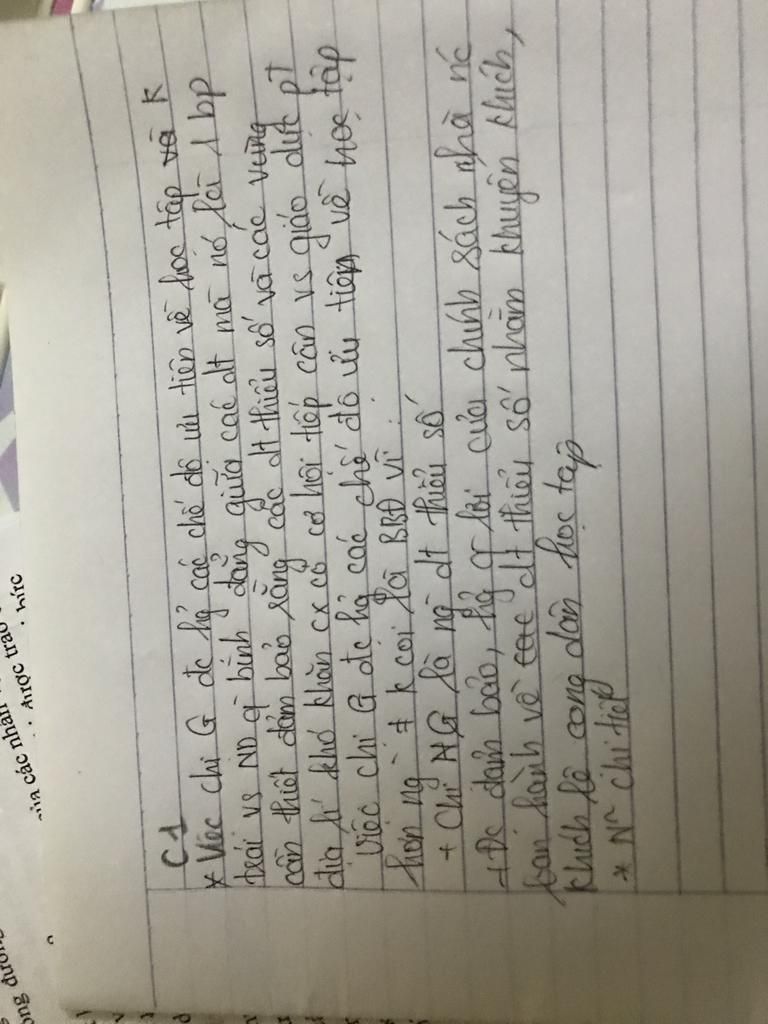 C1
* Việc chị G đc hg các chế độ ưu tiên về học tập và k
trái vs ND q bình đẳng giữa các dt mà nó là 1 bp
cần thiết đảm bảo rằng các dt thiểu số và các vùng
địa lí khó khăn cx có cơ hội tiếp cận vs giáo dục pT
Việc chị G đc hg các chế độ ưu tiên về học tập
hơn ng ≠ k coi là BBĐ vì :
+ Chị G là ng dt thiểu số
+ Đc đảm bảo, hg q lợi của chính sách nhà nc
ban hành về các dt thiểu số nhằm khuyến khích,
khích lệ công dân học tập
* chi tiết
của các nhân
được trao
. . hức
ong đươn